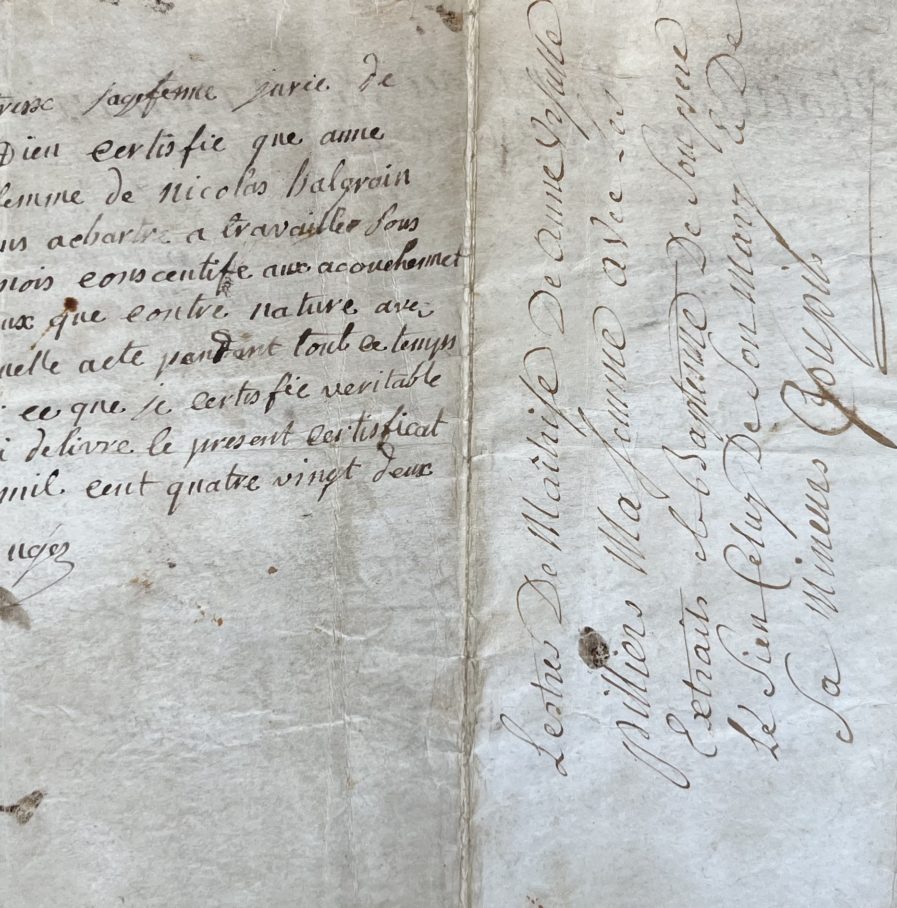 resse sagefemme jurée de
Dieu certisfie que anne
femme de nicolas balgrain
ans achartre a travaillée sous
mois conscentife aux acouchemet
aux que contre nature avec
nelle acte pendant tout ce temps
ce que je certisfie veritable
i delivré le present certisficat
mil cent quatre vingt deux
Lestres De Maîtrise De anne
pilliers Ma femme avec les
Extraits et Baptesme De Son pere
Le Sien Celuy De Son Mary Et De
Sa Mineurs Goupils